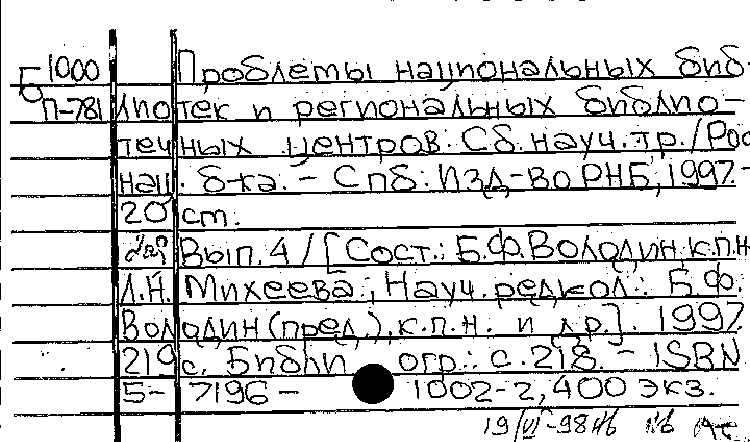 Б 1000 Проблемы национальных биб-
П-781 лиотек и региональных библио-
течных центров: Сб. науч. тр. / Рос
нац. б-ка. - Спб: Изд-во РНБ, 1997-
20 см.
Вып. 4 / [Сост.: Б.Ф. Володин, к.п.н
Л.Н. Михеева; Науч. редкол.: Б.Ф.
Володин (пред.), к.п.н. и др.]. 1997
219 с. Библи огр.: с. 218. - ISBN
5-7196-1002-2, 400 экз.
19/VI-98